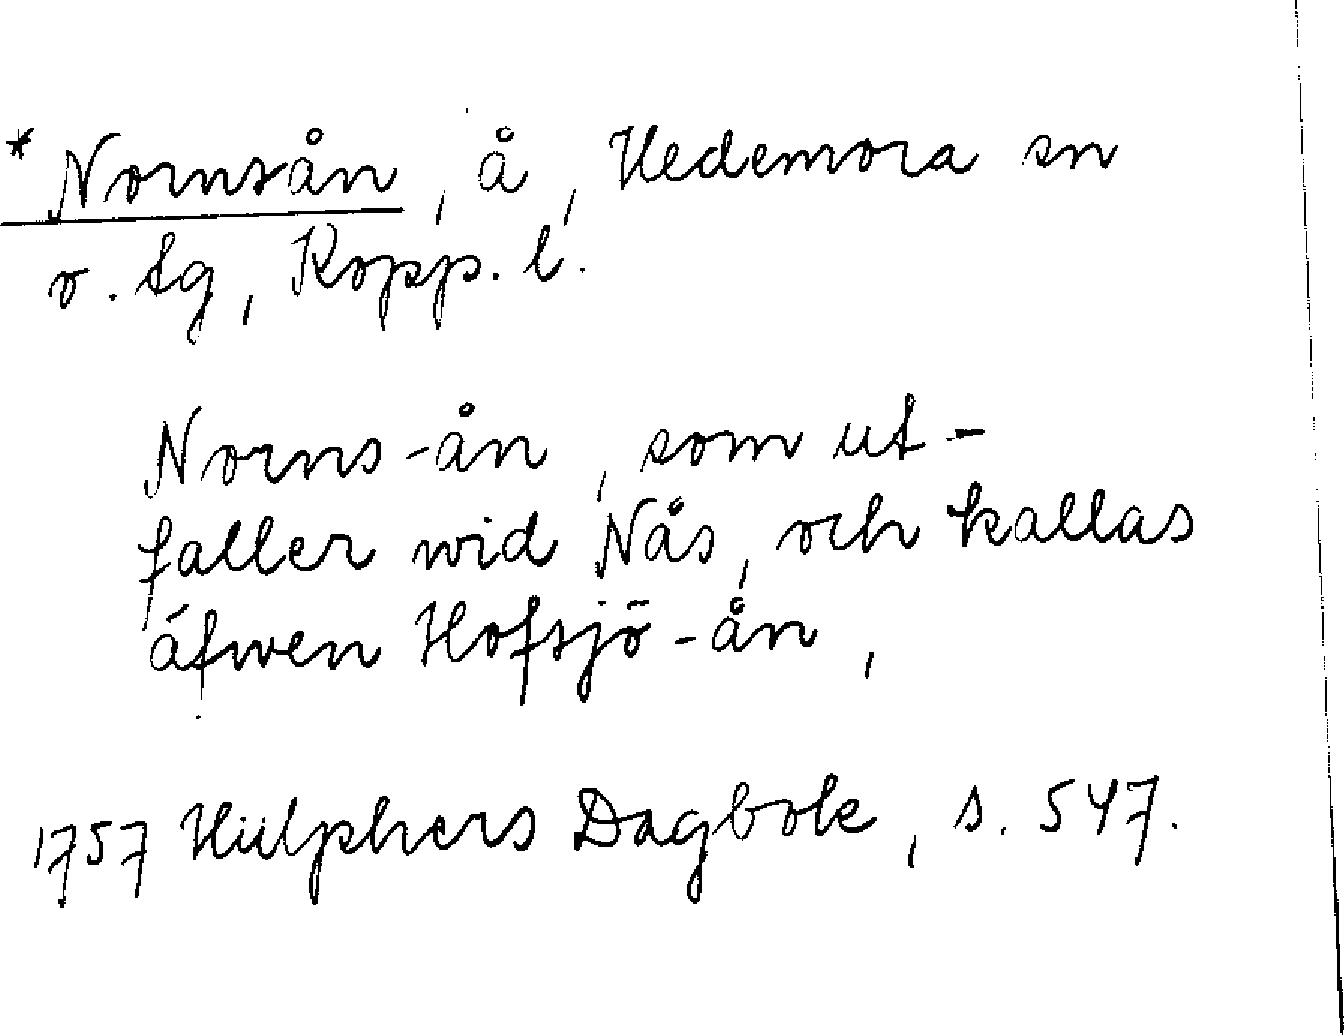 *Nornsån, å, Hedemora sn
o. tg, Kopp. l.
Norns-ån, som ut-
faller wid Nås, och kallas
äfwen Hofsjö-ån,
1757 Hülphers Dagbok, s. 547.